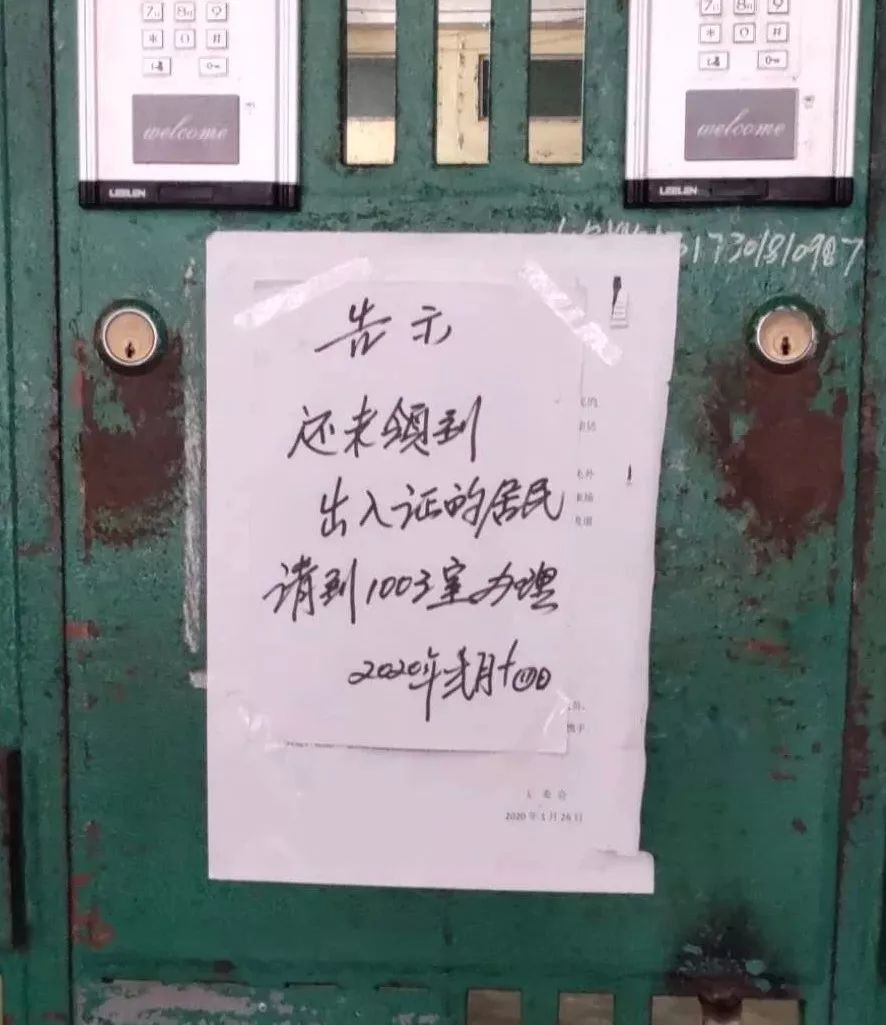 7 8 9
* 0 #
welcome
LEELEN
7 8 9
* 0 #
welcome
LEELEN
17301810987
告示
还未领到
出入证的居民
请到1003室办理
2020年弍月十四日
委会
2020年1月26日